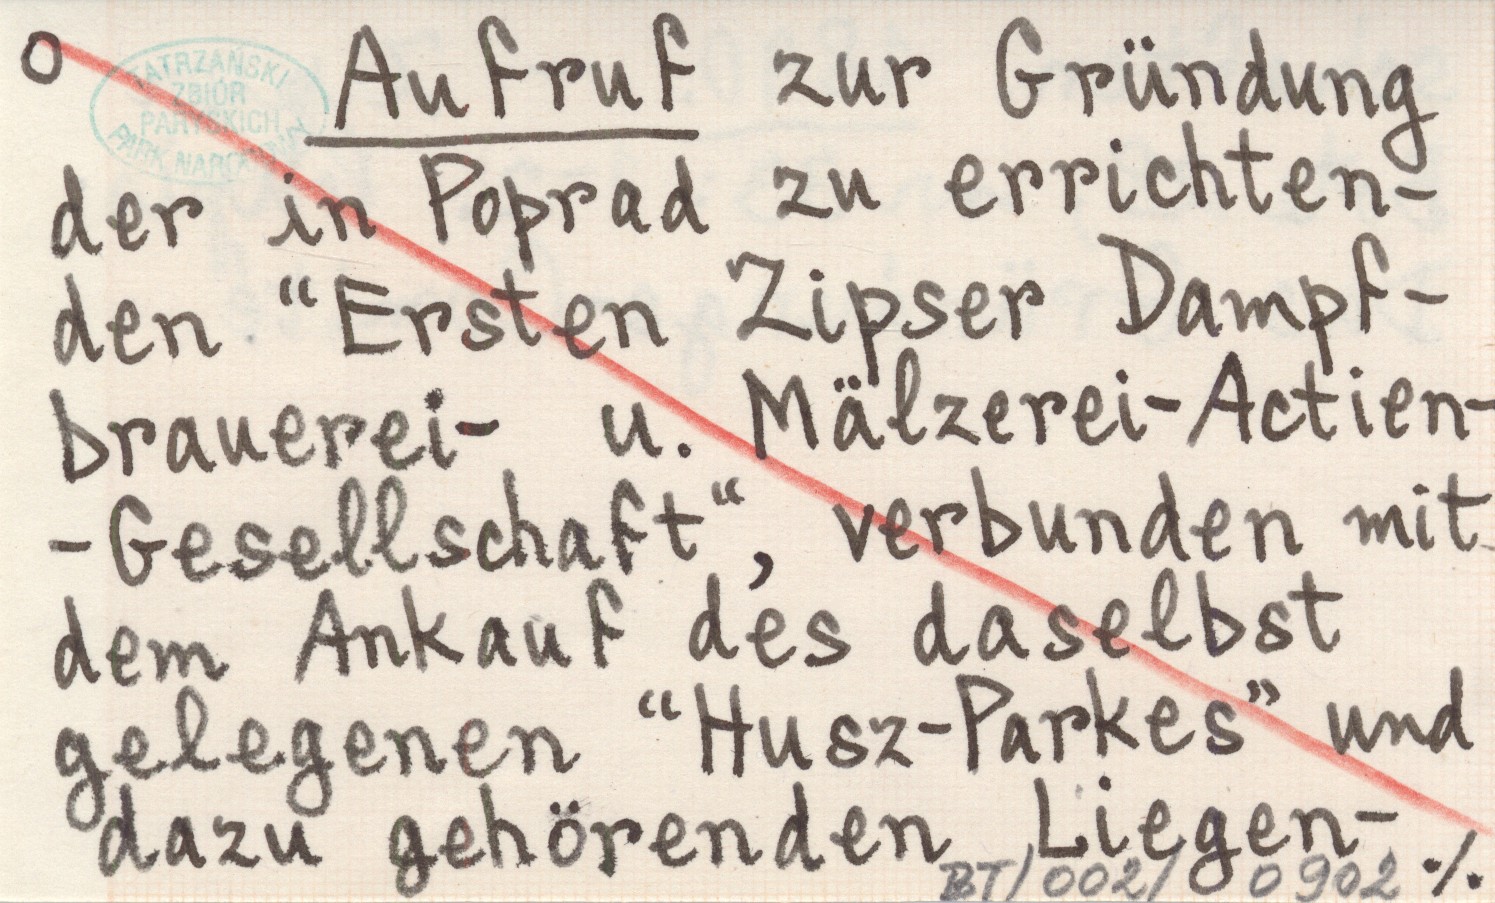 o Aufruf zur Gründung
TATRZAŃSKI
ZBIÓR
PARYSKICH
PARK NARODOWY
der in Poprad zu errichten-
den “Ersten Zipser Dampf-
brauerei- u. Mälzerei-Actien-
-Gesellschaft“, verbunden mit
dem Ankauf des daselbst
gelegenen “Husz-Parkes” und
dazu gehörenden Liegen-
BT/002/0902 ./.